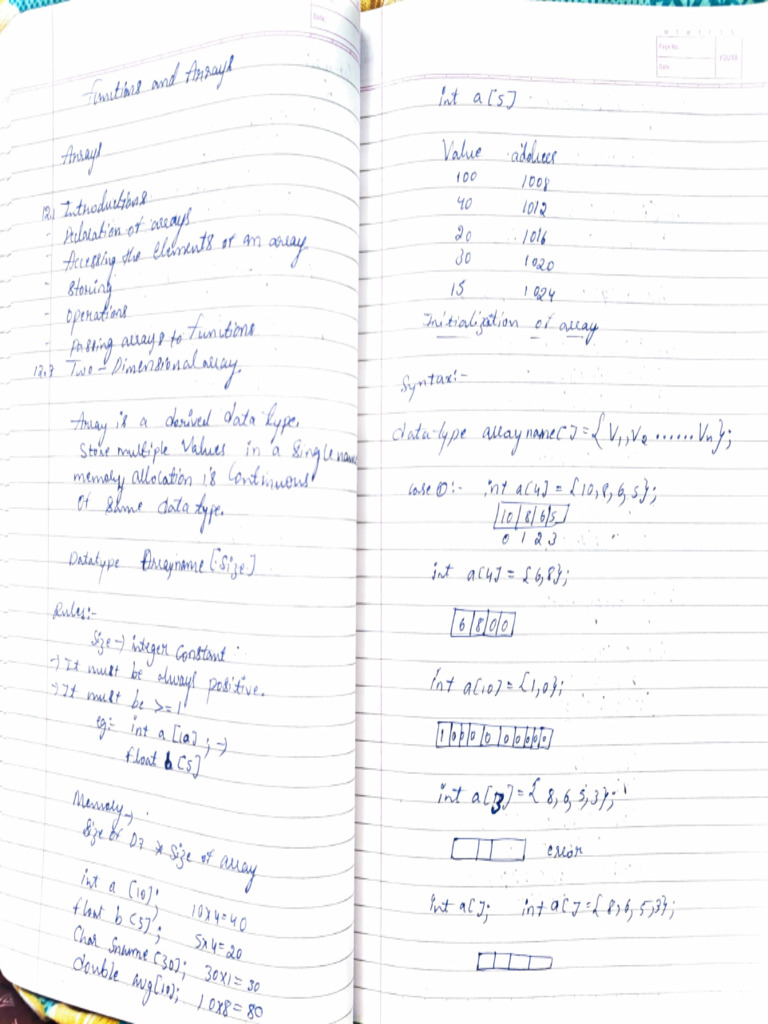 Date
Functions and Arrays
Arrays
12.1 Introductions
- Declaration of arrays
- Accessing the elements of an array
- Storing
- Operations
- Passing arrays to functions
12.3 Two - Dimensional array.
Array is a derived data type.
Store multiple values in a single name
memory allocation is continuous
of same data type.
Datatype Arrayname [size]
Rules:-
Size → integer constant
→ It must be always positive.
→ It must be >= 1
eg:- int a [10] ; →
float b [5]
Memory →
Size of DT * Size of array
int a [10]; 10x4=40
float b [5]; 5x4=20
Char Sname [30]; 30x1=30
double avg[10]; 10x8=80
M T W T F S S
Page No.:
Date: YOUVA
int a[5]
Value address
100 1008
40 1012
20 1016
30 1020
15 1024
Initialization of array
Syntax:-
data-type array name[] = {V1, V2 ...... Vn};
case ①:- int a[4] = {10,8,6,5};
10 8 6 5
0 1 2 3
int a[4] = {6,8};
6 8 0 0
int a[10] = {1,0};
1 0 0 0 0 0 0 0 0 0
int a[3] = {8,6,5,3};
error
int a[]; int a[] = {8,6,5,3};